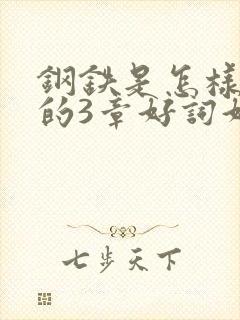 鋼鉄是怎樣
的3章好詞好
七步天下